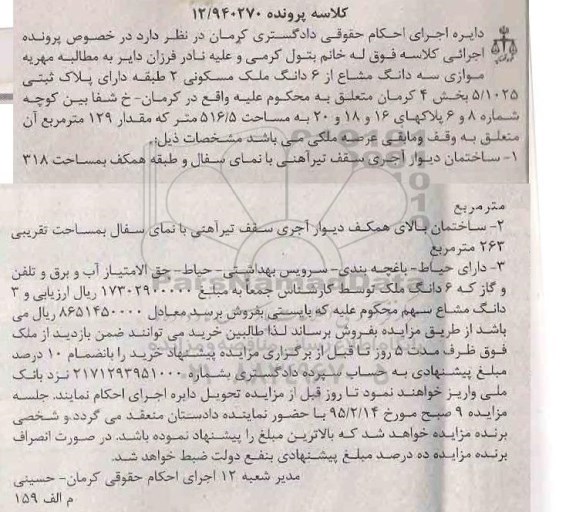 کلاسه پرونده ۱۲/۹۴۰۲۷۰
دایره اجرای احکام حقوقی دادگستری کرمان در نظر دارد در خصوص پرونده
اجرائی کلاسه فوق له خانم بتول کرمی و علیه نادر فرزان دایر به مطالبه مهریه
موازی سه دانگ مشاع از ۶ دانگ ملک مسکونی ۲ طبقه دارای پلاک ثبتی
۵/۱۰۲۵ بخش ۴ کرمان متعلق به محکوم علیه واقع در کرمان- خ شفا بین کوچه
شماره ۸ و ۶ پلاکهای ۱۶ و ۱۸ و ۲۰ به مساحت ۵۱۶/۵ متر که مقدار ۱۲۹ مترمربع آن
متعلق به وقف ومابقی عرصه ملکی می باشد مشخصات ذیل:
۱- ساختمان دیوار آجری سقف تیرآهنی با نمای سفال و طبقه همکف بمساحت ۳۱۸
مترمربع
۲- ساختمان بالای همکف دیوار آجری سقف تیرآهنی با نمای سفال بمساحت تقریبی
۲۶۳ مترمربع
۳- دارای حیاط- باغچه بندی- سرویس بهداشتی- حیاط- حق الامتیاز آب و برق و تلفن
و گاز که ۶ دانگ ملک توسط کارشناس جمعا به مبلغ ۱۷۳۰۲۹۰۰۰۰۰ ریال ارزیابی و ۳
دانگ مشاع سهم محکوم علیه که بایستی بفروش برسد معادل ۸۶۵۱۴۵۰۰۰۰ ریال می
باشد از طریق مزایده بفروش برساند لذا طالبین خرید می توانند ضمن بازدید از ملک
فوق ظرف مدت ۵ روز تا قبل از برگزاری مزایده پیشنهاد خرید را بانضمام ۱۰ درصد
مبلغ پیشنهادی به حساب سپرده دادگستری بشماره ۲۱۷۱۲۹۳۹۵۱۰۰۰ نزد بانک
ملی واریز خواهند نمود تا روز قبل از مزایده تحویل دایره اجرای احکام نمایند. جلسه
مزایده ۹ صبح مورخ ۹۵/۲/۱۴ با حضور نماینده دادستان منعقد می گردد.و شخصی
برنده مزایده خواهد شد که بالاترین مبلغ را پیشنهاد نموده باشد. در صورت انصراف
برنده مزایده ده درصد مبلغ پیشنهادی بنفع دولت ضبط خواهد شد.
مدیر شعبه ۱۲ اجرای احکام حقوقی کرمان- حسینی
م الف ۱۵۹